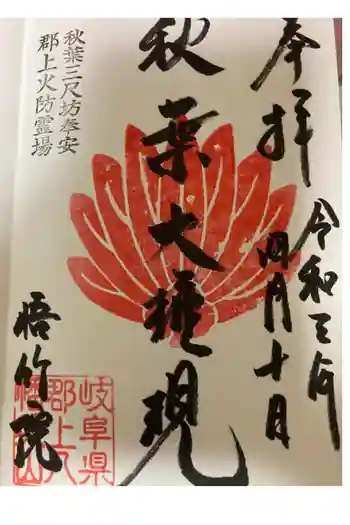 奉拝
令和三年
四月十日
秋葉大権現
秋葉三尺坊奉安
郡上火防霊場
悟竹院
岐阜県
郡上八
幡山